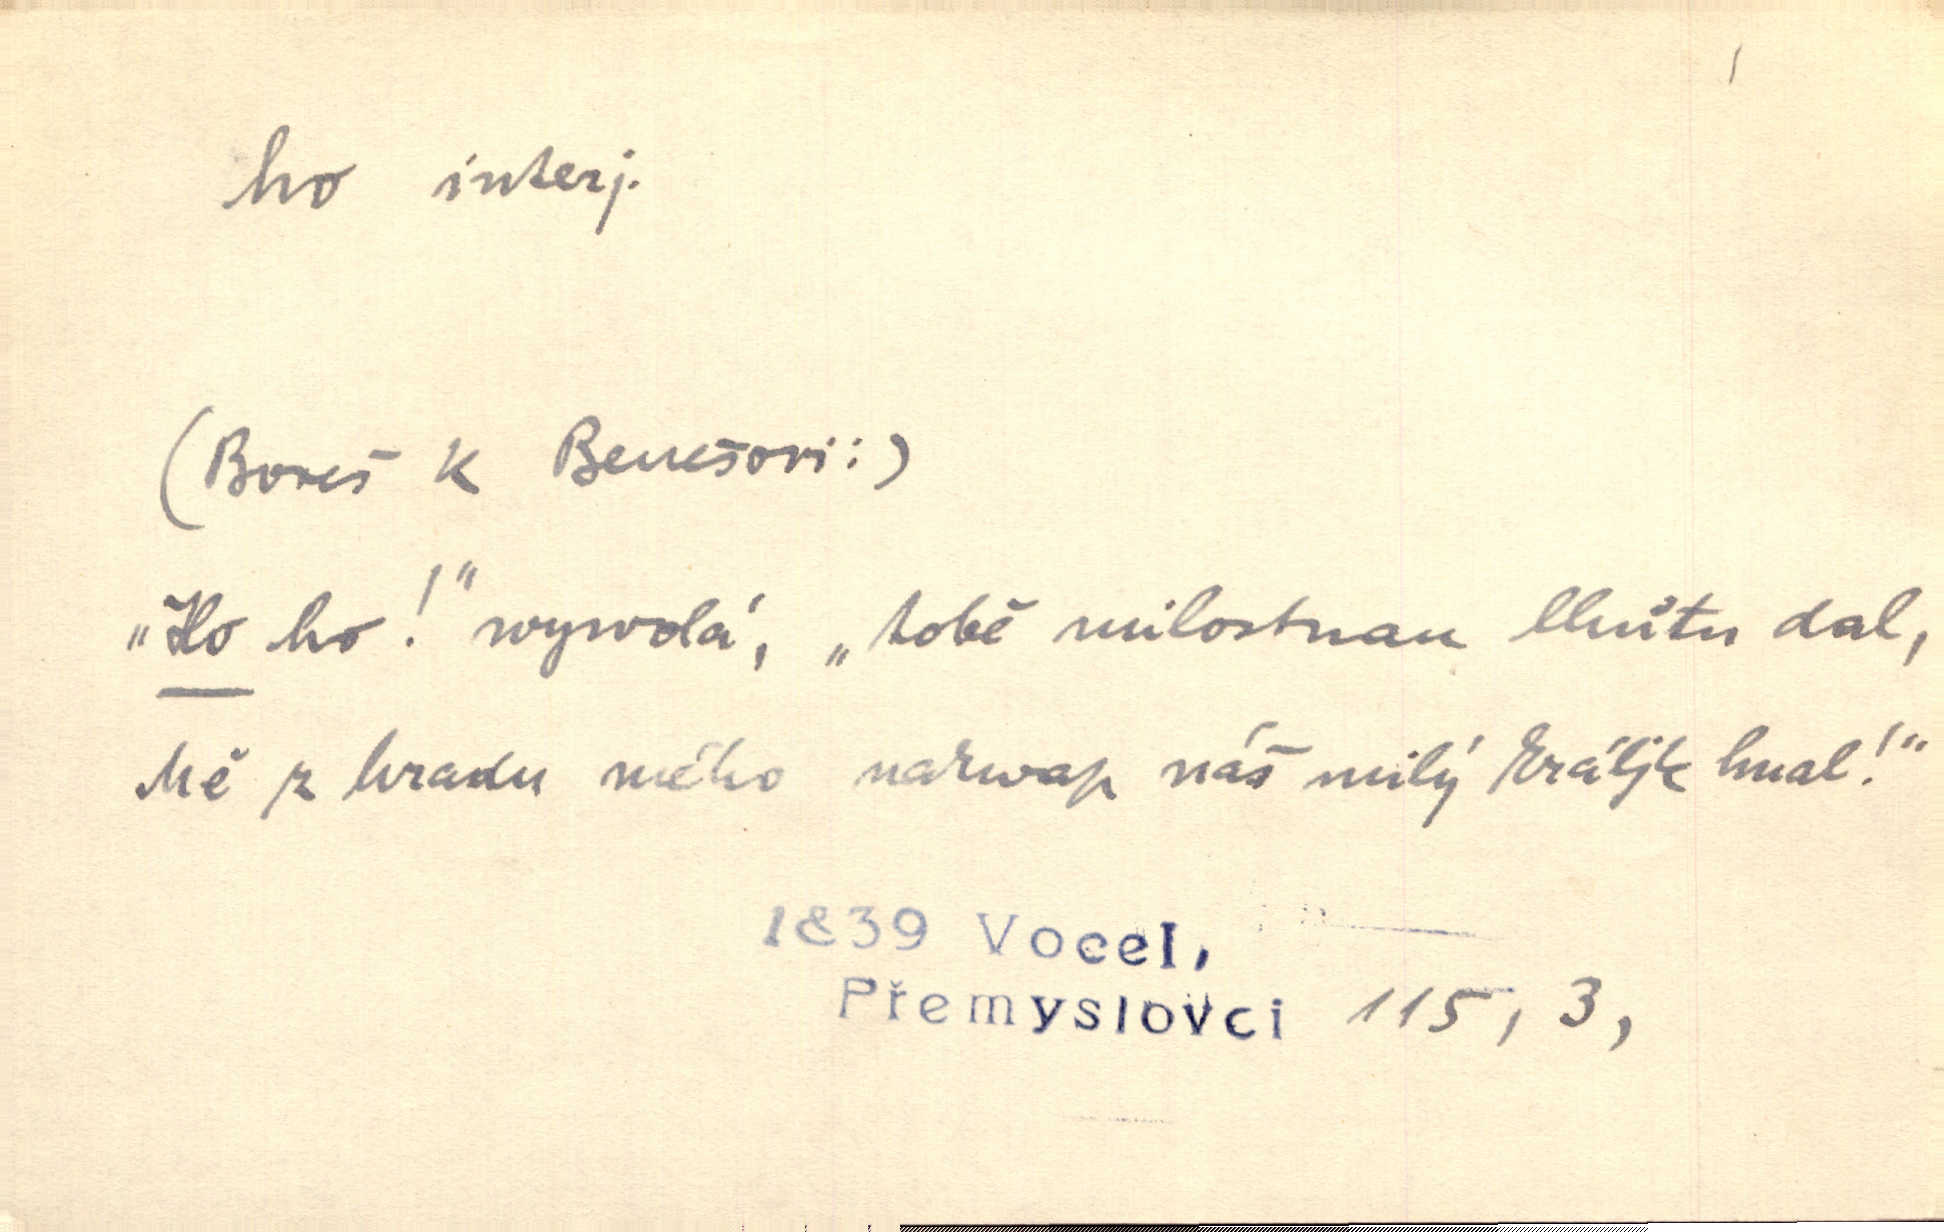 ho interj.
(Boreš k Benešovi:)
„Ho ho!“ wywolá, „tobě milostnau lhůtu dal,
Mě z hradu mého narwap náš milý králjk hnal!“
1839 Vocel,
Přemyslovci 115, 3,